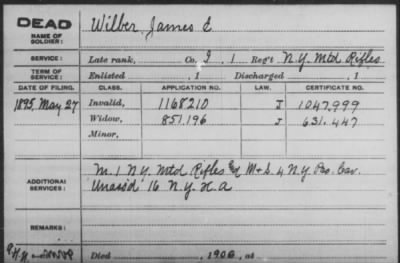 DEAD
NAME OF SOLDIER:
Wilber, James E
SERVICE:
Late rank, Co. I, 1 Reg't N.Y. Mtd Rifles
TERM OF SERVICE:
Enlisted , 1 Discharged , 1
DATE OF FILING. CLASS. APPLICATION NO. LAW. CERTIFICATE NO.
1895, May 27 Invalid, 1168210 J 1047.999
Widow, 851.196 J 631.447
Minor,
ADDITIONAL SERVICES:
M. 1 N.Y. Mtd Rifles M & L. 4 N.Y. Pro. Cav.
Unass'd 16 N.Y. H A
REMARKS:
Died , 1906, at